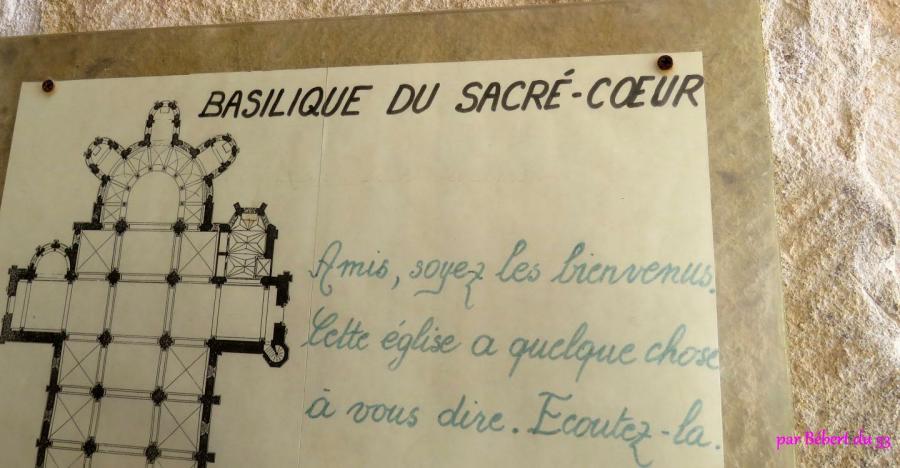 BASILIQUE DU SACRÉ-CŒUR
Amis, soyez les bienvenus.
Cette église a quelque chose
à vous dire. Ecoutez-la.
par Bébert du 93